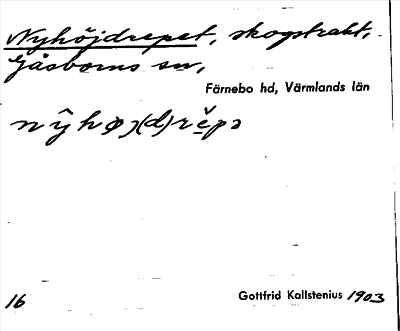 Nyhöjdrepet, skogstrakt,
Gåsborns sn,
Färnebo hd, Värmlands län
nŷhøj(d)rĕpə
16
Gottfrid Kallstenius 1903